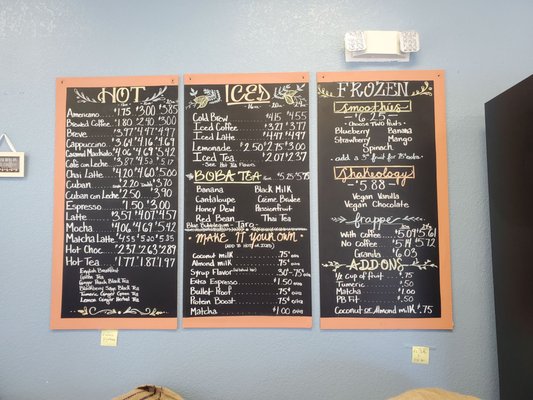 HOT
Americano $1.75 $3.00 $3.85
Brewed Coffee 1.80 2.40
Breve $3.97 $4.47 $4.97
Cappuccino $3.64 $4.16 $4.69
Caramel Macchiato $4.06 $4.69 $5.42
Cafe con Leche
Chai Latte $4.20 $4.60 $5.00
Cuban 2.20 3.70
Cuban con Leche 2.50 3.90
Espresso 1.50 $3.00
Latte $3.57 $4.07 $4.57
Mocha $4.06 $4.69 $5.42
Matcha Latte $4.55 $5.20 $5.85
Hot Choc $2.37 $2.63 $2.89
Hot Tea $1.77 $1.87 $1.97
English Breakfast
Green Tea
Ginger Peach Black Tea
Blackberry Sage Black Tea
Turmeric Ginger Green Tea
Lemon Ginger Herbal Tea
ICED
Cold Brew $4.15 $4.55
Iced Coffee $3.27 $3.77
Iced Latte $4.47 $4.97
Lemonade 2.50 $2.75 $3.00
Iced Tea $2.07 $2.37
See Hot Tea Flavors
BOBA TEA $5.25 $5.75
Banana Black Milk
Cantaloupe Crème Brulee
Honey Dew Passionfruit
Red Bean Thai Tea
Blue Bubblegum Taro
MAKE IT YOUR OWN
Coconut milk .75¢
Almond milk .75¢
Syrup Flavor .30¢ - .75¢
Extra Espresso $1.50
Bullet Proof .75¢
Protein Boost .75¢
Matcha $1.00
FROZEN
smoothies
6.25
choose two fruits
Blueberry Banana
Strawberry Mango
Spinach
add a 3rd fruit for
Shakeology
5.88
Vegan Vanilla
Vegan Chocolate
frappe
With Coffee $5.09 $5.61
No Coffee $5.14 $5.72
Granita $6.03
ADD ONS
½ Cup of fruit $.75
Turmeric $.50
Matcha $1.00
PB Fit $.50
Coconut or Almond milk $.75